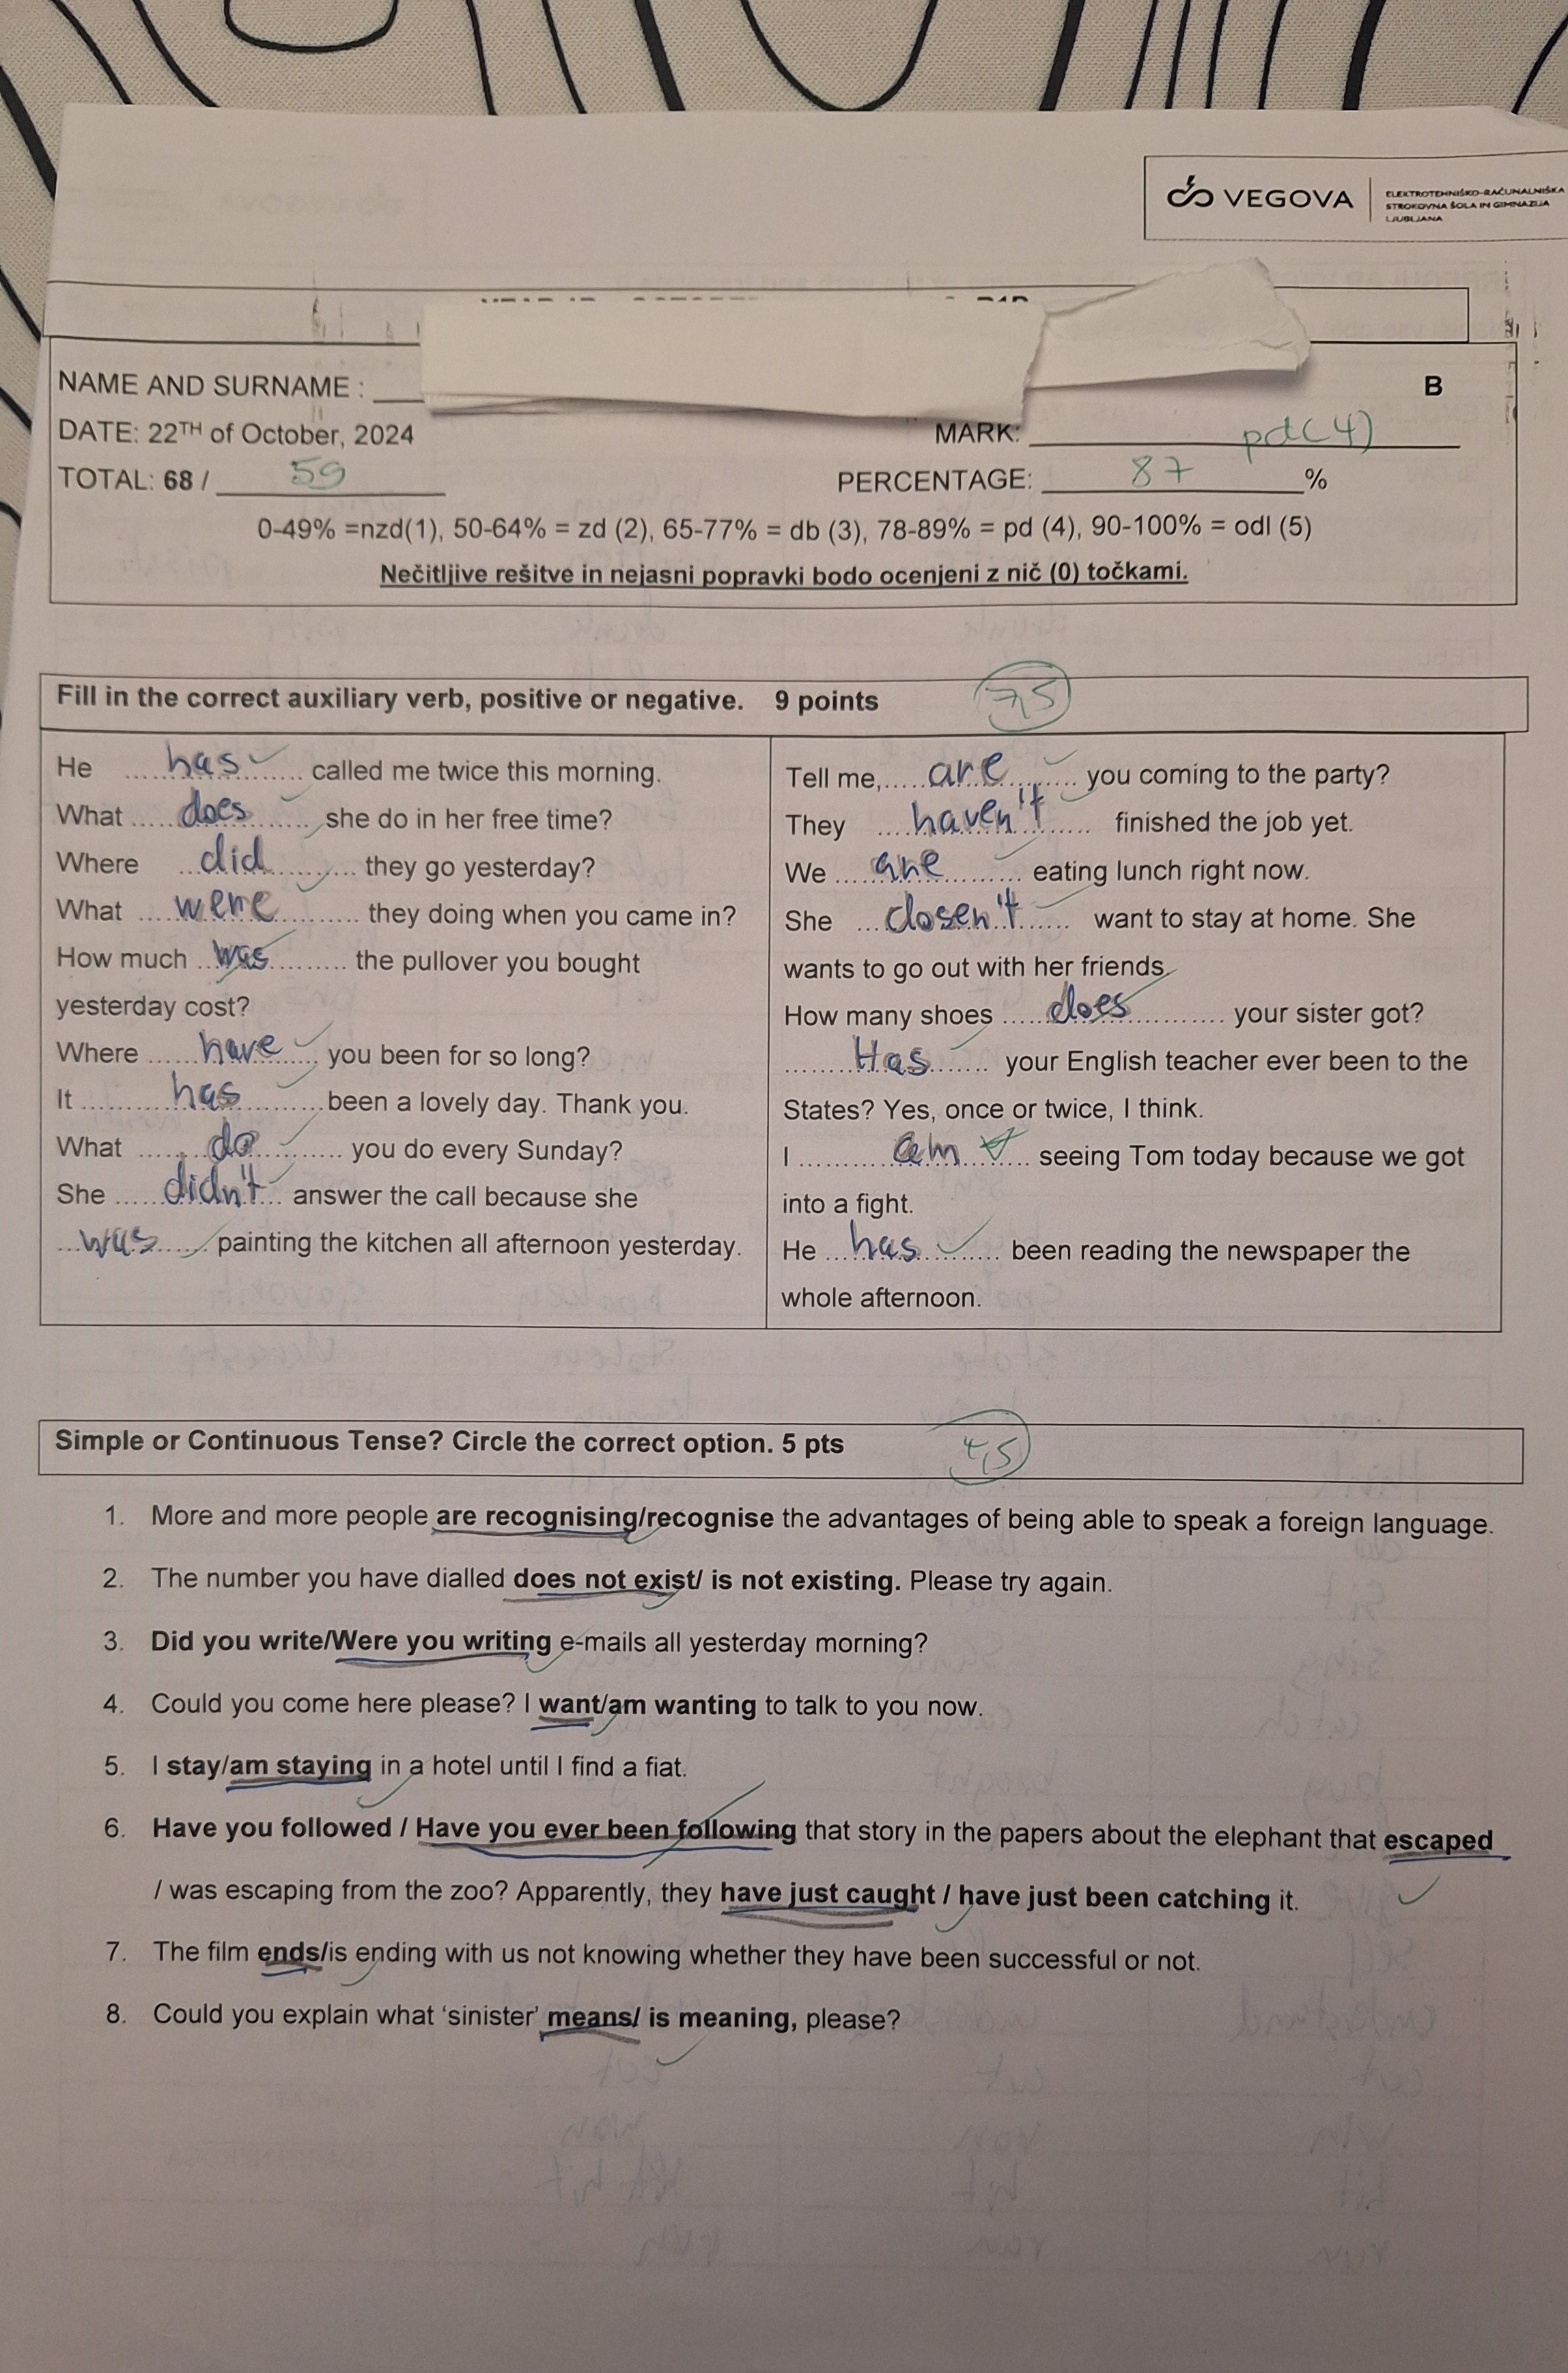 VEGOVA
ELEKTROTEHNIŠKO-RAČUNALNIŠKA
STROKOVNA ŠOLA IN GIMNAZIJA
LJUBLJANA
NAME AND SURNAME :
B
DATE: 22TH of October, 2024
MARK: pd(4)
TOTAL: 68 / 59
PERCENTAGE: 87 %
0-49% =nzd(1), 50-64% = zd (2), 65-77% = db (3), 78-89% = pd (4), 90-100% = odl (5)
Nečitljive rešitve in nejasni popravki bodo ocenjeni z nič (0) točkami.
Fill in the correct auxiliary verb, positive or negative. 9 points 7,5
He has called me twice this morning.
What does she do in her free time?
Where did they go yesterday?
What were they doing when you came in?
How much was the pullover you bought
yesterday cost?
Where have you been for so long?
It has been a lovely day. Thank you.
What do you do every Sunday?
She didn't answer the call because she
was painting the kitchen all afternoon yesterday.
Tell me, are you coming to the party?
They haven't finished the job yet.
We are eating lunch right now.
She dosen't want to stay at home. She
wants to go out with her friends.
How many shoes does your sister got?
Has your English teacher ever been to the
States? Yes, once or twice, I think.
I am seeing Tom today because we got
into a fight.
He has been reading the newspaper the
whole afternoon.
Simple or Continuous Tense? Circle the correct option. 5 pts 4,5
1. More and more people are recognising/recognise the advantages of being able to speak a foreign language.
2. The number you have dialled does not exist/ is not existing. Please try again.
3. Did you write/Were you writing e-mails all yesterday morning?
4. Could you come here please? I want/am wanting to talk to you now.
5. I stay/am staying in a hotel until I find a fiat.
6. Have you followed / Have you ever been following that story in the papers about the elephant that escaped
/ was escaping from the zoo? Apparently, they have just caught / have just been catching it.
7. The film ends/is ending with us not knowing whether they have been successful or not.
8. Could you explain what ‘sinister’ means/ is meaning, please?